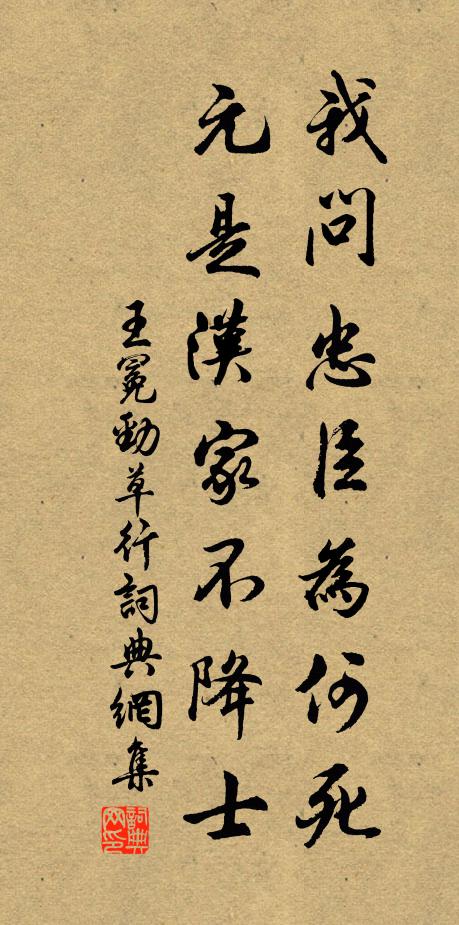 我問忠臣為何死
元是漢家不降士
王冕勁草行詞典網集
詞典網印